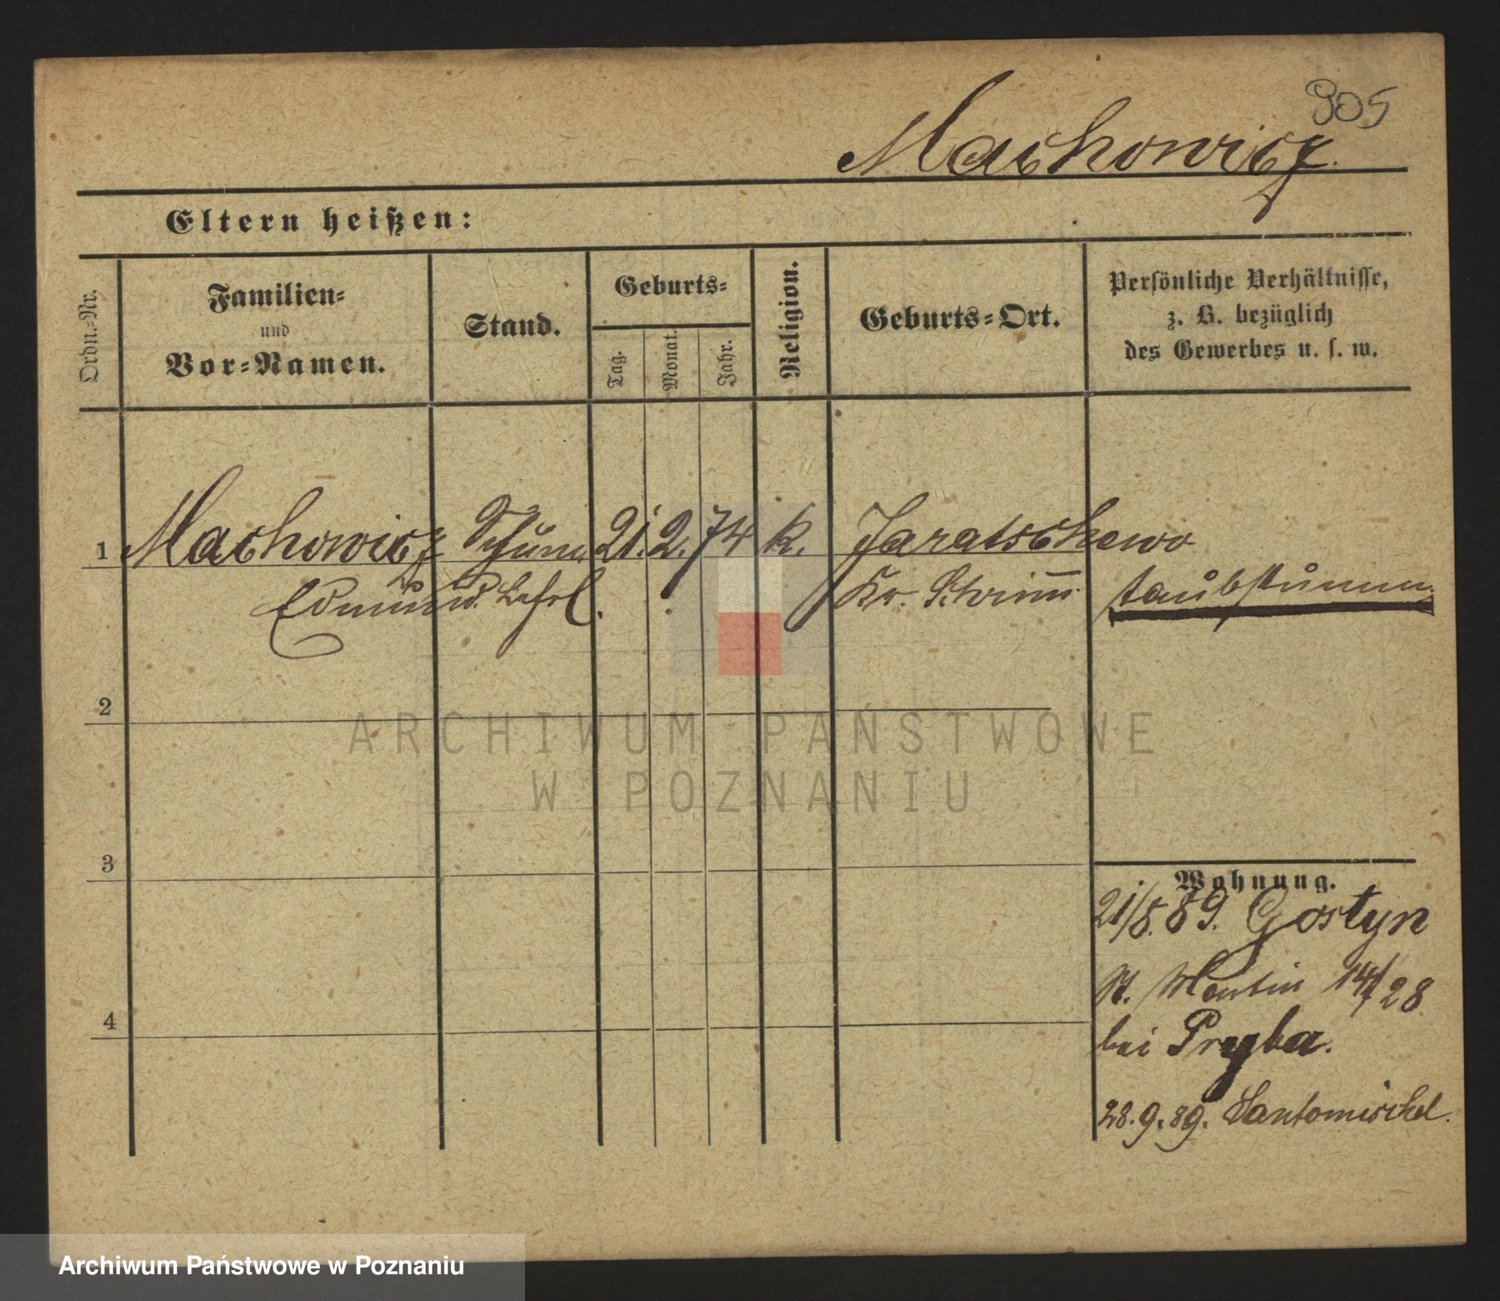 905
Machowicz.
Eltern heißen:
Ordn.-Nr.
Familien-
und
Vor-Namen.
Stand.
Geburts-
Tag.
Monat.
Jahr.
Religion.
Geburts-Ort.
Persönliche Verhältnisse,
z. B. bezüglich
des Gewerbes u. s. w.
1 Machowicz 21. 2. 74 k. Jaratschewo
Edmund Lehrl. Kr. Schrimm taubstumm
2
3
4
Wohnung.
21/8. 89. Gostyn
St. Martin 14/28
bei Pryba.
28. 9. 89. Santomischel.
ARCHIWUM PAŃSTWOWE
W POZNANIU
Archiwum Państwowe w Poznaniu